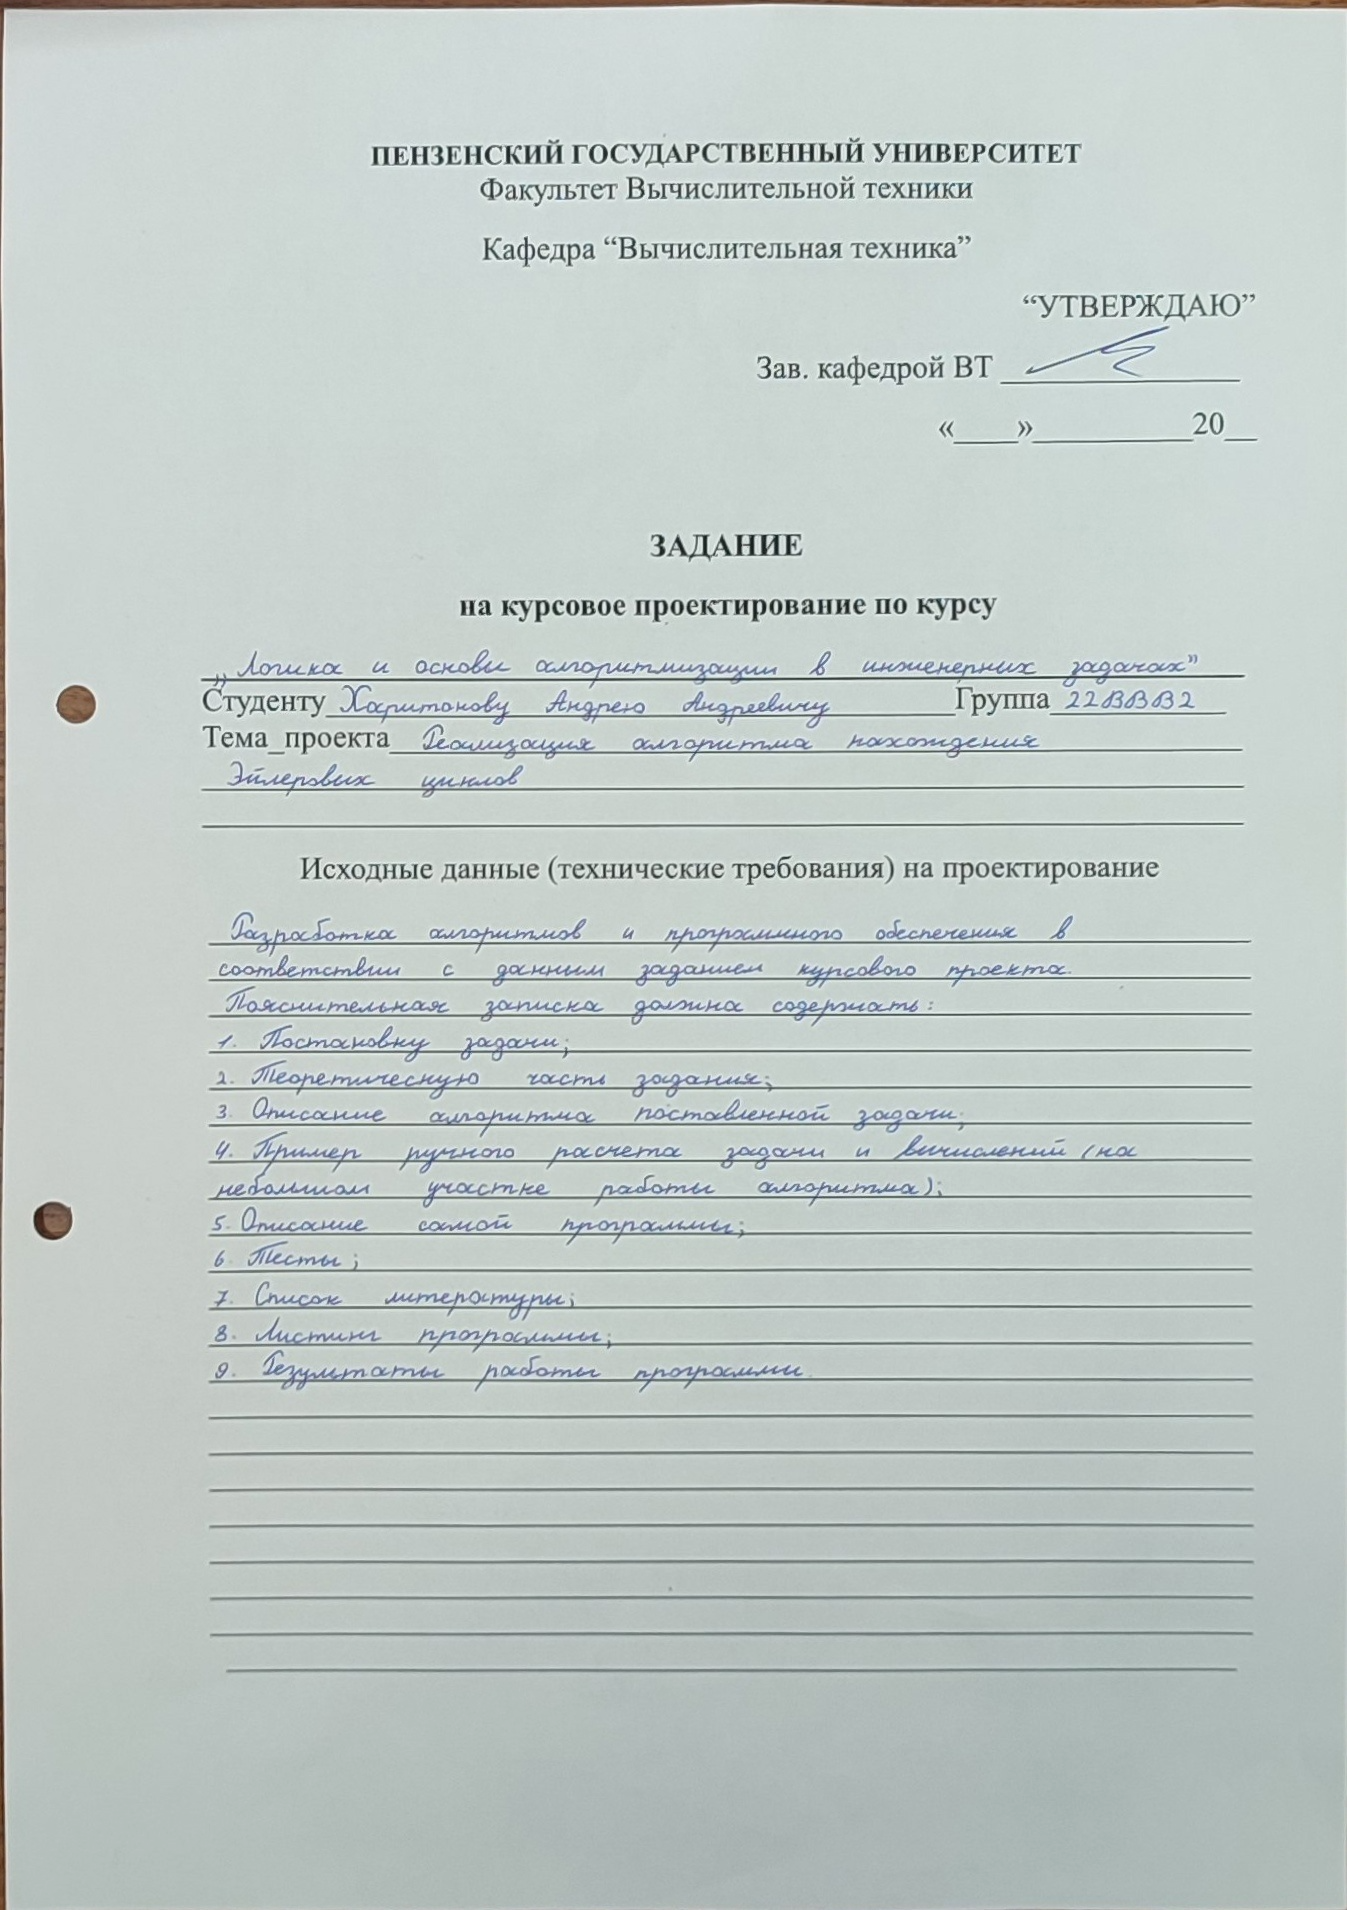 ПЕНЗЕНСКИЙ ГОСУДАРСТВЕННЫЙ УНИВЕРСИТЕТ
Факультет Вычислительной техники
Кафедра “Вычислительная техника”
“УТВЕРЖДАЮ”
Зав. кафедрой ВТ _______________
«____»__________20__
ЗАДАНИЕ
на курсовое проектирование по курсу
„Логика и основы алгоритмизации в инженерных задачах”
Студенту Харитонову Андрею Андреевичу Группа 22ВВВ2
Тема_проекта Реализация алгоритма нахождения
Эйлеровых циклов
Исходные данные (технические требования) на проектирование
Разработка алгоритмов и программного обеспечения в
соответствии с данным заданием курсового проекта.
Пояснительная записка должна содержать:
1. Постановку задачи;
2. Теоретическую часть задания;
3. Описание алгоритма поставленной задачи;
4. Пример ручного расчета задачи и вычислений (на
небольшом участке работы алгоритма);
5. Описание самой программы;
6. Тесты;
7. Список литературы;
8. Листинг программы;
9. Результаты работы программы.